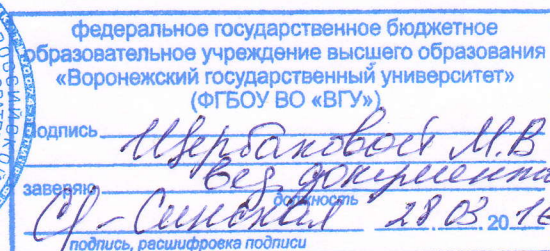 федеральное государственное бюджетное
образовательное учреждение высшего образования
«Воронежский государственный университет»
(ФГБОУ ВО «ВГУ»)
подпись Щербаковой М.В
заверяю вед. документо
должность
28.03. 2016
подпись, расшифровка подписи